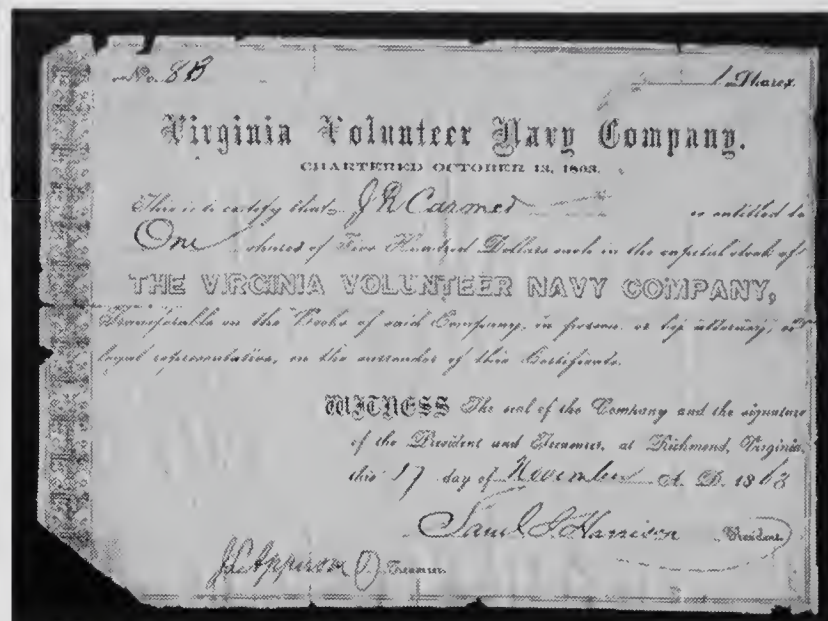 No. 83 1 Shares.
Virginia Volunteer Navy Company.
CHARTERED OCTOBER 13, 1863.
This is to certify that J R Carmed is entitled to
One shares of Five Hundred Dollars each in the capital stock of
THE VIRGINIA VOLUNTEER NAVY COMPANY,
Transferable on the Books of said Company, in person or by attorney, or
legal representative, on the surrender of this Certificate.
WITNESS The seal of the Company and the signature
of the President and Treasurer, at Richmond, Virginia,
this 17 day of November A. D. 1863
Saml J. Harrison President.
Apperson Treasurer.